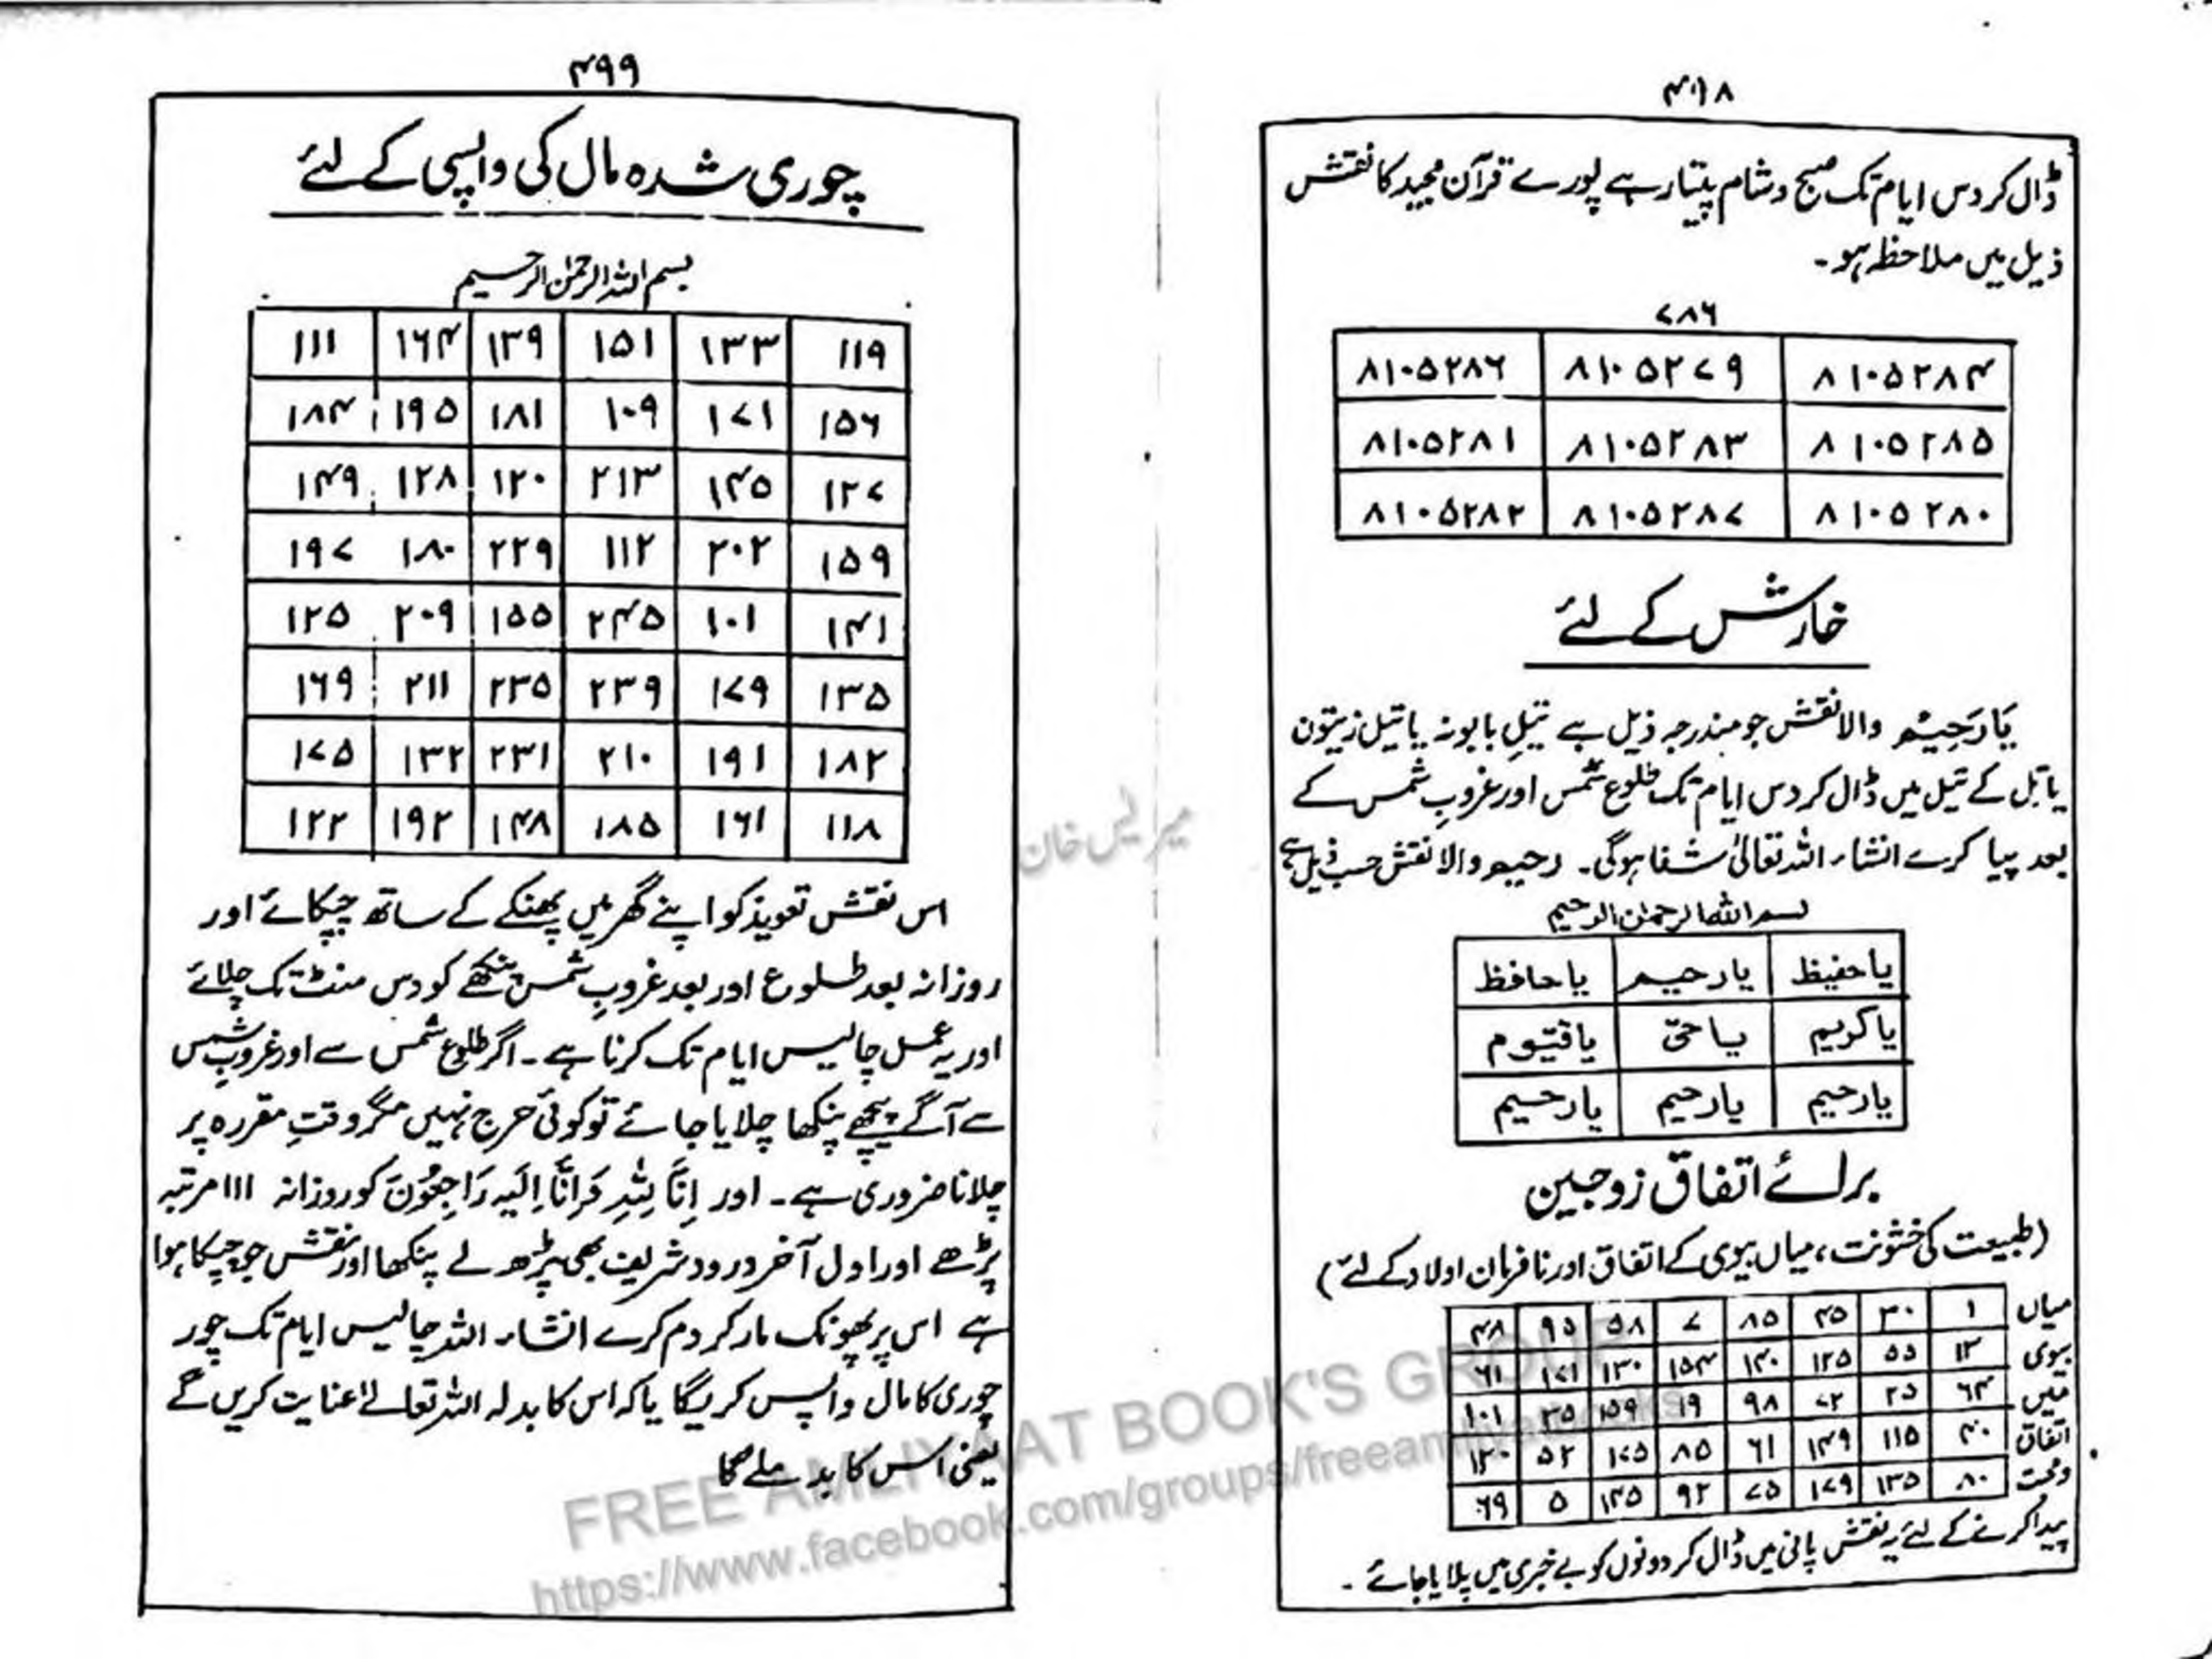 ۴۹۸
ڈال کر دس ایام تک صبح و شام پیتا رہے پورے قرآن مجید کا نقش
ذیل میں ملاحظہ ہو۔
۷۸۶
۸۱۰۵۲۸۶ ۸۱۰۵۲۷۹ ۸۱۰۵۲۸۴
۸۱۰۵۲۸۱ ۸۱۰۵۲۸۳ ۸۱۰۵۲۸۵
۸۱۰۵۲۸۲ ۸۱۰۵۲۸۷ ۸۱۰۵۲۸۰
خارش کے لئے
یَارَحِیْمُ والا نقش جو مندرجہ ذیل ہے تیلِ بابونہ یا تیل زیتون
یا تل کے تیل میں ڈال کر دس ایام تک طلوع شمس اور غروبِ شمس کے
بعد پیا کرے انشاء اللہ تعالیٰ شفا ہوگی۔ رحیم والا نقش حسب ذیل ہے
بسم اللہ الرحمٰن الرحیم
یا حفیظ یا رحیم یا حافظ
یا کریم یا حیّ یا قیّوم
یا رحیم یا رحیم یا رحیم
برائے اتفاق زوجین
(طبیعت کی خشونت، میاں بیوی کے اتفاق اور نافرمان اولاد کے لئے)
میاں ۱ ۳۰ ۴۵ ۸۵ ۷ ۵۸ ۹۵ ۴۸
بیوی ۱۲ ۵۵ ۱۲۵ ۱۴۰ ۱۵۴ ۱۳۰ ۱۷۱ ۶۱
میں ۶۴ ۲۵ ۷۲ ۹۸ ۱۹ ۱۵۹ ۳۵ ۱۰۱
اتفاق ۴۰ ۱۱۵ ۱۴۹ ۶۱ ۸۵ ۱۷۵ ۵۲ ۱۲۰
ومحبت ۸۰ ۱۳۵ ۱۷۹ ۷۵ ۹۲ ۱۴۵ ۵ ۶۹
پیدا کرنے کے لئے یہ نقش پانی میں ڈال کر دونوں کو بے خبری میں پلایا جائے۔
۴۹۹
چوری شدہ مال کی واپسی کے لئے
بسم اللہ الرحمٰن الرحیم
۱۱۱ ۱۶۴ ۱۳۹ ۱۵۱ ۱۳۳ ۱۱۹
۱۸۴ ۱۹۵ ۱۸۱ ۱۰۹ ۱۷۱ ۱۵۶
۱۴۹ ۱۲۸ ۱۲۰ ۲۱۳ ۱۴۵ ۱۲۷
۱۹۷ ۱۸۰ ۲۲۹ ۱۱۲ ۲۰۲ ۱۵۹
۱۲۵ ۲۰۹ ۱۵۵ ۲۴۵ ۱۰۱ ۱۴۱
۱۶۹ ۲۱۱ ۲۳۵ ۲۳۹ ۱۷۹ ۱۳۵
۱۷۵ ۱۳۲ ۲۳۱ ۲۱۰ ۱۹۱ ۱۸۲
۱۲۲ ۱۹۲ ۱۴۸ ۱۸۵ ۱۶۱ ۱۱۸
اس نقش تعویذ کو اپنے گھر میں پھنکے کے ساتھ چپکائے اور
روزانہ بعد طلوع اور بعد غروبِ شمس پنکھے کو دس منٹ تک چلائے
اور یہ عمل چالیس ایام تک کرنا ہے۔ اگر طلوع شمس سے اور غروبِ شمس
سے آگے پیچھے پنکھا چلایا جائے تو کوئی حرج نہیں مگر وقتِ مقررہ پر
چلانا ضروری ہے۔ اور اِنَّا لِلّٰہِ وَاِنَّا اِلَیْہِ رَاجِعُوْنَ کو روزانہ ۱۱۱ مرتبہ
پڑھے اور اول آخر درود شریف بھی پڑھ لے پنکھا اور نقش جو چپکا ہوا
ہے اس پر پھونک مار کر دم کرے انشاء اللہ چالیس ایام تک چور
چوری کا مال واپس کریگا یا کہ اس کا بدلہ اللہ تعالےٰ عنایت کریں گے
یعنی اس کا بدلہ ملے گا
FREE AMLIYAAT BOOK'S GROUP
https://www.facebook.com/groups/freeamliyatbooks